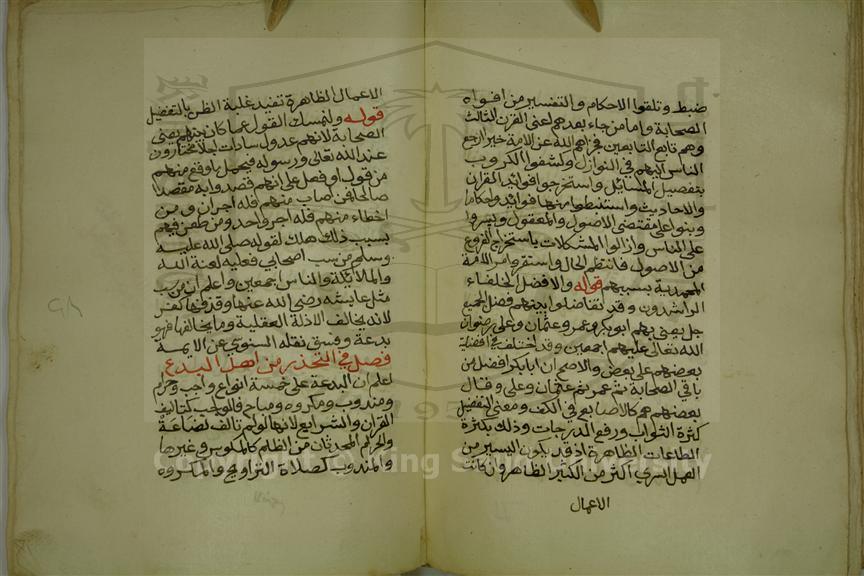 ضبط وتلقوا الاحكام والتفسير من افواه
الصحابة واما من جاء بعدهم اعني القرن الثالث
وهم تابع التابعين فجزاهم الله عن الامة خيرا رجع
الناس اليهم في النوازل وكشفوا الكروب
بتفصيل المسائل واستخرجوا فوائد القران
والاحاديث واستنبطوا منها فوائد واحكاما
وبنوا على مقتضى الاصول والمعقول ويسروا
على الناس وازالوا المشكلات باستخراج الفروع
من الاصول فانتظم الحال واستقر امر الامة
المحمدية بسببهم قوله والافضل الخلفاء
الراشدون وقد تفاضلوا بينهم فضل الجميع
جل يعني بهم ابو بكر وعمر وعثمان وعلي رضوان
الله تعالى عليهم اجمعين وقد اختلف في افضلية
بعضهم على بعض والاصح ان ابا بكر افضل من
باقي الصحابة ثم عمر ثم عثمان وعلي وقال
بعضهم هم كالاصابع في الكف ومعنى التفضيل
كثرة الثواب ورفع الدرجات وذلك بكثرة
الطاعات الظاهرة اذ قد يكون اليسير من
العمل السري اكثر من الكثير الظاهر وان كانت
الاعمال
الاعمال الظاهرة تفيد غلبة الظن بالتفضيل
قوله ولنمسك القول عما كان بينهم يعني
الصحابة لانهم عدول سادات اجلا مختارون
عند الله تعالى ورسوله فيحمل ما وقع منهم
من قول او فعل على انهم قصدوا به مقصدا
صالحا فمن اصاب منهم فله اجران ومن
اخطاء منهم فله اجر واحد ومن طعن فيهم
بسبب ذلك هلك لقوله صلى الله عليه
وسلم من سب اصحابي فعليه لعنة الله
والملائكة والناس اجمعين واعلم ان من سب
مثل عايشة رضي الله عنها وقذفها كفر
لانه يخالف الادلة العقلية وما يخالفها فهو
بدعة وفسق نقله السنوسي عن الايمة
فصل في التحذير من اهل البدع
اعلم ان البدعة على خمسة انواع واجب وحرام
ومندوب ومكروه ومباح فالواجب كتاليف
القران والشرايع لانها لو لم تالف لضاعة
والحرام المحدثان من الظلم كالمكوس وغيرها
والمندوب كصلاة التراويح والمكروه
Copyright © King Saud University